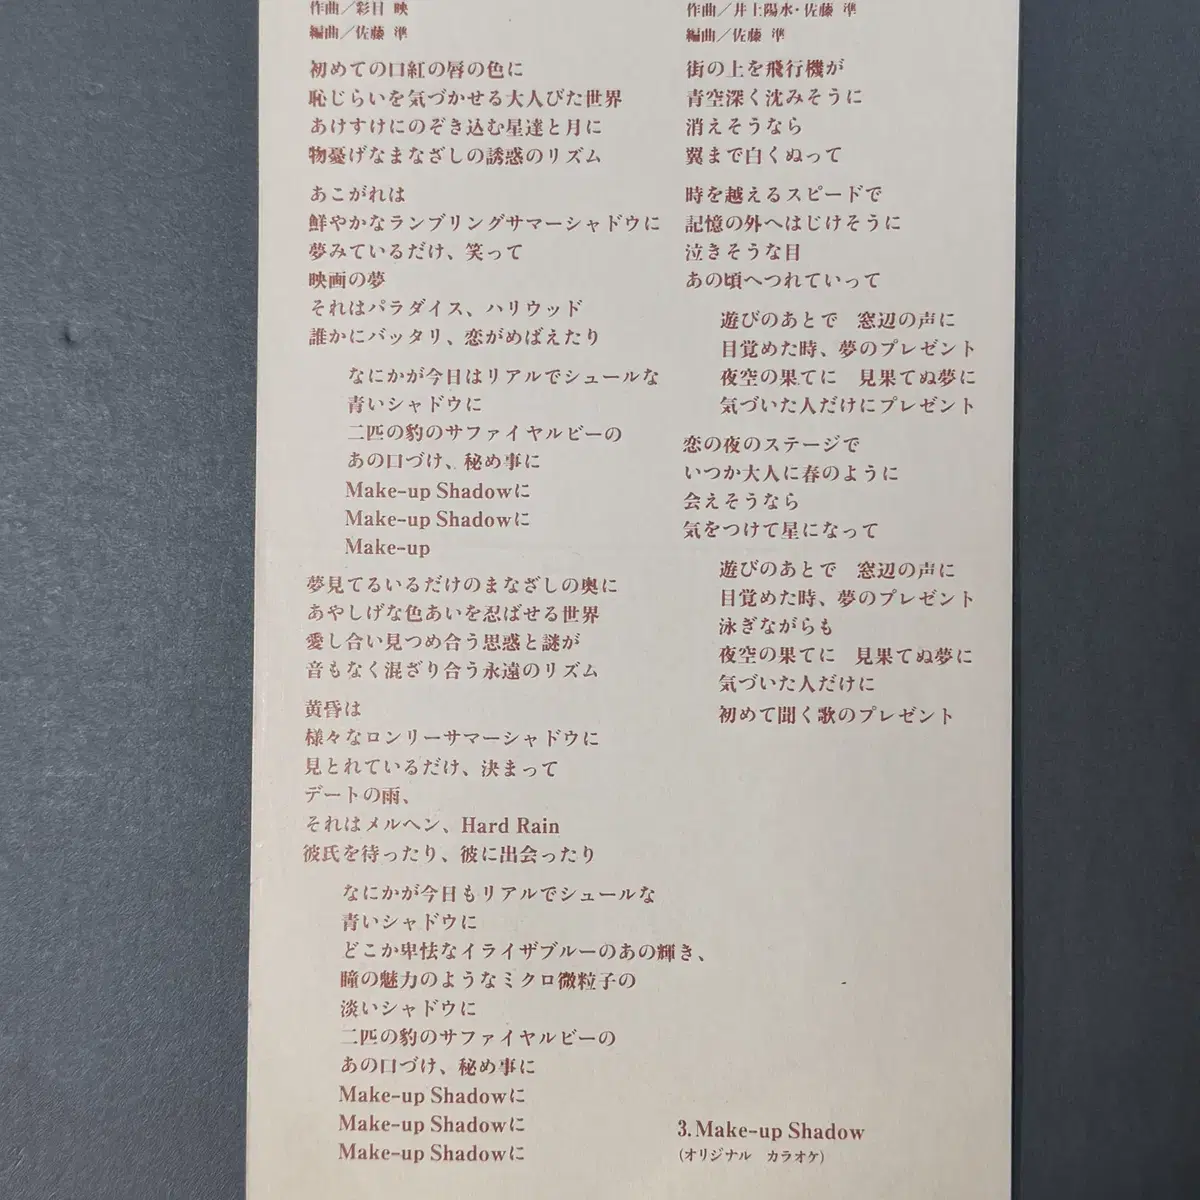 作曲／彩目 映
編曲／佐藤 準
初めての口紅の唇の色に
恥じらいを気づかせる大人びた世界
あけすけにのぞき込む星達と月に
物憂げなまなざしの誘惑のリズム
あこがれは
鮮やかなランブリングサマーシャドウに
夢みているだけ、笑って
映画の夢
それはパラダイス、ハリウッド
誰かにバッタリ、恋がめばえたり
なにかが今日はリアルでシュールな
青いシャドウに
二匹の豹のサファイヤルビーの
あの口づけ、秘め事に
Make-up Shadowに
Make-up Shadowに
Make-up
夢見てるいるだけのまなざしの奥に
あやしげな色あいを忍ばせる世界
愛し合い見つめ合う思惑と謎が
音もなく混ざり合う永遠のリズム
黄昏は
様々なロンリーサマーシャドウに
見とれているだけ、決まって
デートの雨、
それはメルヘン、Hard Rain
彼氏を待ったり、彼に出会ったり
なにかが今日もリアルでシュールな
青いシャドウに
どこか卑怯なイライザブルーのあの輝き、
瞳の魅力のようなミクロ微粒子の
淡いシャドウに
二匹の豹のサファイヤルビーの
あの口づけ、秘め事に
Make-up Shadowに
Make-up Shadowに
Make-up Shadowに
作曲／井上陽水・佐藤 準
編曲／佐藤 準
街の上を飛行機が
青空深く沈みそうに
消えそうなら
翼まで白くぬって
時を越えるスピードで
記憶の外へはじけそうに
泣きそうな目
あの頃へつれていって
遊びのあとで　窓辺の声に
目覚めた時、夢のプレゼント
夜空の果てに　見果てぬ夢に
気づいた人だけにプレゼント
恋の夜のステージで
いつか大人に春のように
会えそうなら
気をつけて星になって
遊びのあとで　窓辺の声に
目覚めた時、夢のプレゼント
泳ぎながらも
夜空の果てに　見果てぬ夢に
気づいた人だけに
初めて聞く歌のプレゼント
3. Make-up Shadow
(オリジナル　カラオケ)